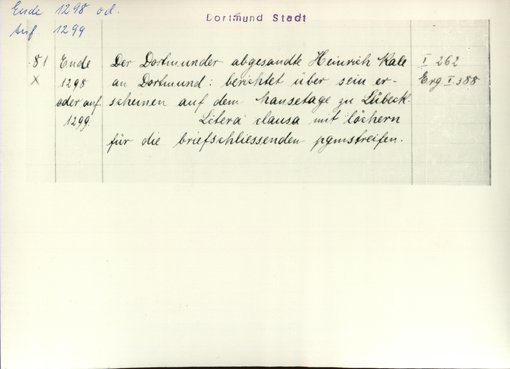 Ende 1298 od.
Anf. 1299
Dortmund Stadt
81 Ende Der Dortmunder abgesandte Heinrich Kale I 262
X 1298 an Dortmund: berichtet über sein er- Erg I 388
oder anf scheinen auf dem hansetage zu Lübeck.
1299 Litera clausa mit löchern
für die briefschliessenden pgmstreifen.